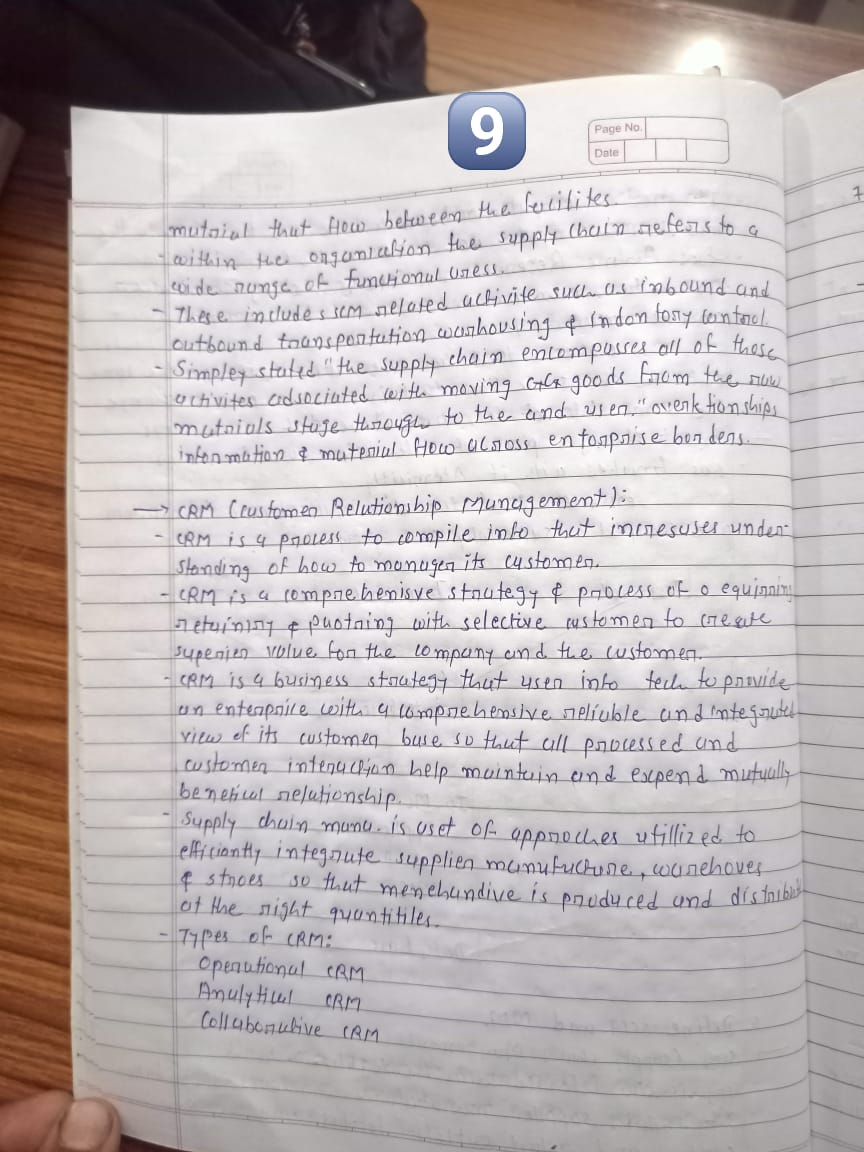 9
Page No.
Date
mutnial that flow between the fecilites.
- within the organisation the supply chain refers to a
wide range of functional uress.
- These includes scm related activite such as inbound and
outbound transportation warhousing & indontory control.
- Simpley stated "the supply chain encompasses all of those
activites adsociated with moving goods from the raw
mutnials stage through to the and user."
information & material flow across entorprise borders.
→ CRM (Customer Relationship Management):
- CRM is a process to compile info that incresuses under-
standing of how to manager its customer.
- CRM is a comprehenisve strategy & process of
retaining & puotning with selective customer to create
superier value for the company and the customer.
- CRM is a business strategy that user info tech to provide
an enterprice with a comprehensive reliable and integrated
view of its customer base so that all processed and
customer interaction help maintain and expend mutually
benetical relationship.
- Supply chain mana. is uset of approches utillized to
efficiantly integrate supplier manufucture, warehoves
& stroes so that menchandive is produced and distribut
at the right quantitiles.
- Types of CRM:
Operational CRM
Anulytical CRM
Collaborative CRM